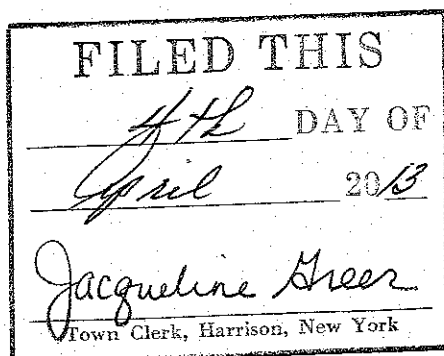 FILED THIS
4th DAY OF
April 2013
Jacqueline Greer
Town Clerk, Harrison, New York